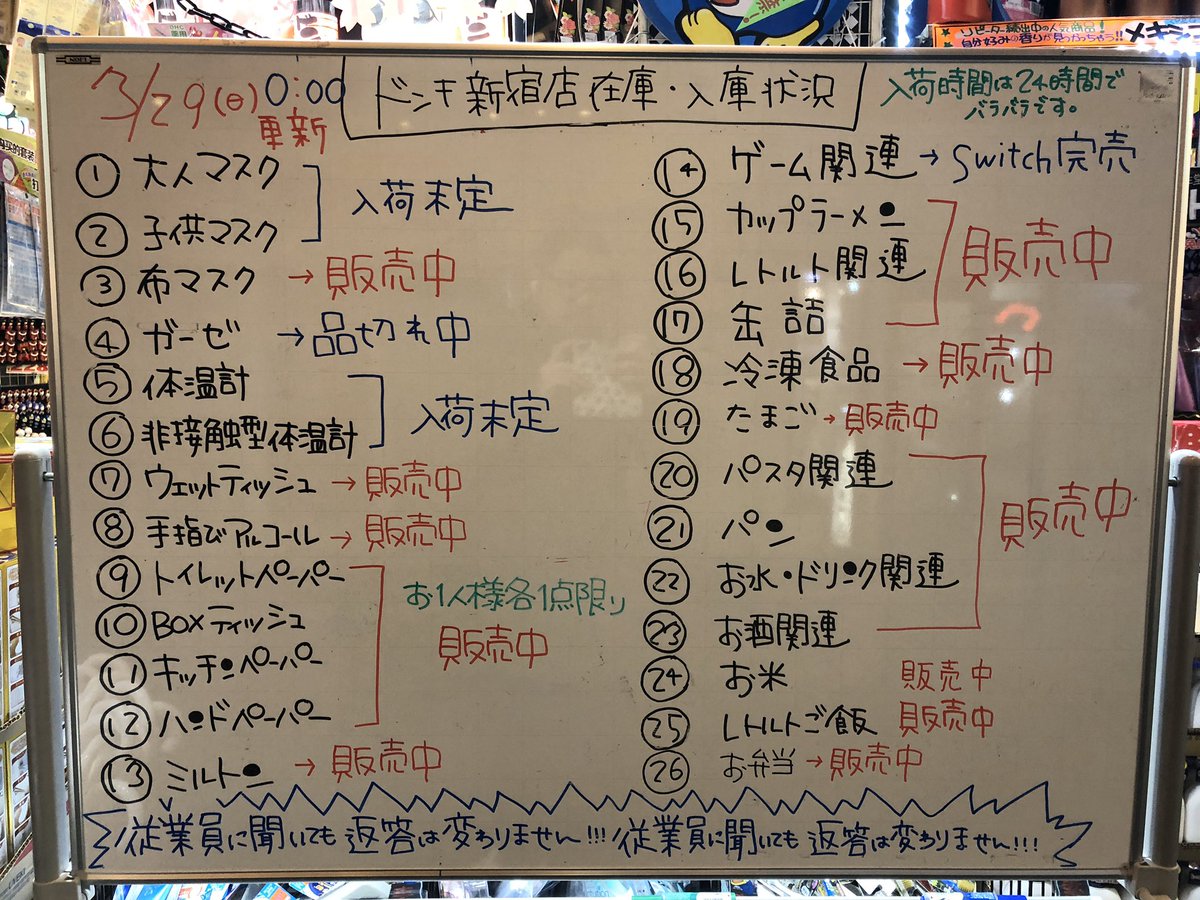 3/29(日) 0:00 更新
ドンキ新宿店在庫・入庫状況
入荷時間は24時間で
バラバラです。
① 大人マスク
② 子供マスク
入荷未定
③ 布マスク → 販売中
④ ガーゼ → 品切れ中
⑤ 体温計
⑥ 非接触型体温計
入荷未定
⑦ ウェットティッシュ → 販売中
⑧ 手指びアルコール → 販売中
⑨ トイレットペーパー
⑩ BOXティッシュ
⑪ キッチンペーパー
⑫ ハンドペーパー
お1人様各1点限り
販売中
⑬ ミルトン → 販売中
⑭ ゲーム関連 → Switch完売
⑮ カップラーメン
⑯ レトルト関連
⑰ 缶詰
販売中
⑱ 冷凍食品 → 販売中
⑲ たまご → 販売中
⑳ パスタ関連
㉑ パン
㉒ お水・ドリンク関連
㉓ お酒関連
販売中
㉔ お米 販売中
㉕ レトルトご飯 販売中
㉖ お弁当 → 販売中
従業員に聞いても返答は変わりません!!! 従業員に聞いても返答は変わりません!!!
リピーター続出中の人気商品!
自分好みの香りが見つかっちゃう!!